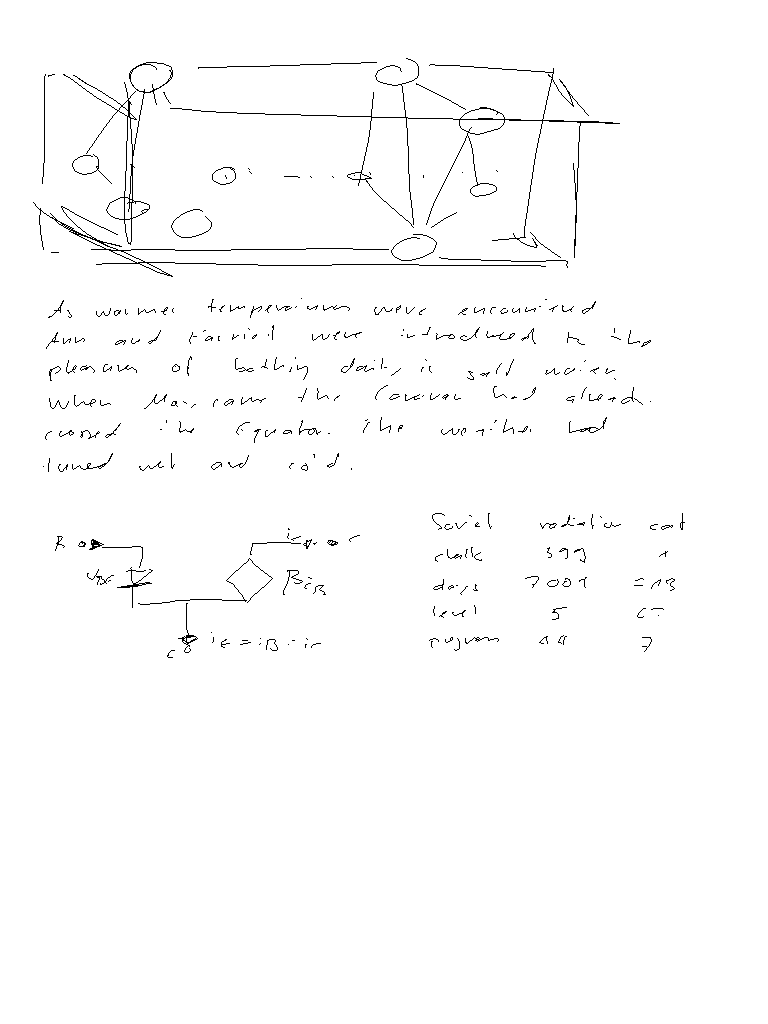 As warmer temperatures were encountered
Ann and Harriet were introduced to the
pleasures of bathing daily in salt water.
When May came the Caravan had already
crossed the Equator. The weather had
turned wet and cold.
Soviet radiation cost
chalk 399 1
days 7001
level 5
program 11 7
B
iC
C
βiB
iE = iB - iC